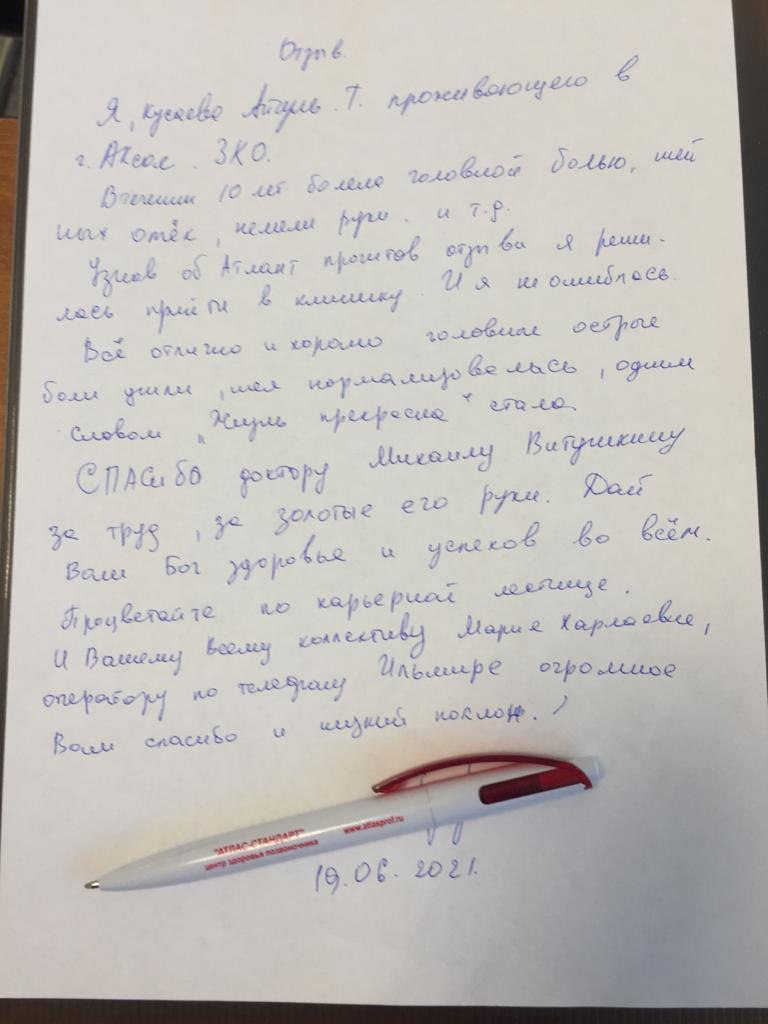 Отзыв.
Я, Кусаева Айгуль. Т. проживающего в
г. Аксае. ЗКО.
Втечении 10 лет болела головной болью, шей
ных отёк, немели руки. и т.д.
Узнав об Атлант прочитов отзывы я реши-
лась прийти в клинику. И я не ошиблась.
Всё отлично и хорошо головные острые
боли ушли, шея нормализовалась, одним
словом „Жизнь прекрасна" стала.
СПАСИБО доктору Михаилу Витушкину
за труд, за золотые его руки. Дай
Вам Бог здоровье и успехов во всём.
Процветайте по карьерной лестнице.
И Вашему всему коллективу Марие Харлаевне,
оператору по телефону Ильмире огромное
Вам спасибо и низкий поклон.
"АТЛАС-СТАНДАРТ"
центр здоровья позвоночника
www.atlasprof.ru
19.06.2021.